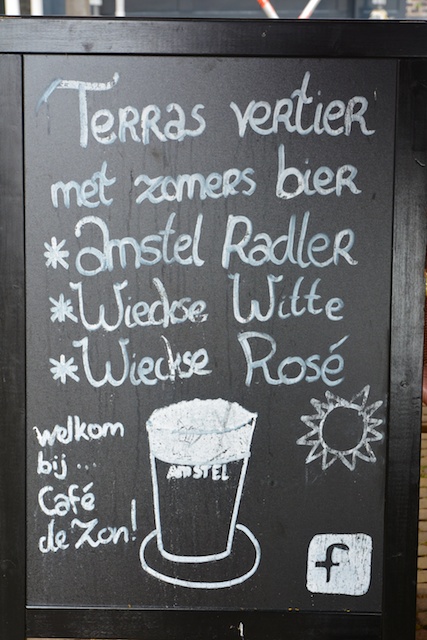 Terras vertier
met zomers bier
* Amstel Radler
* Wieckse Witte
* Wieckse Rosé
welkom
bij...
Café
de Zon!
AMSTEL
f